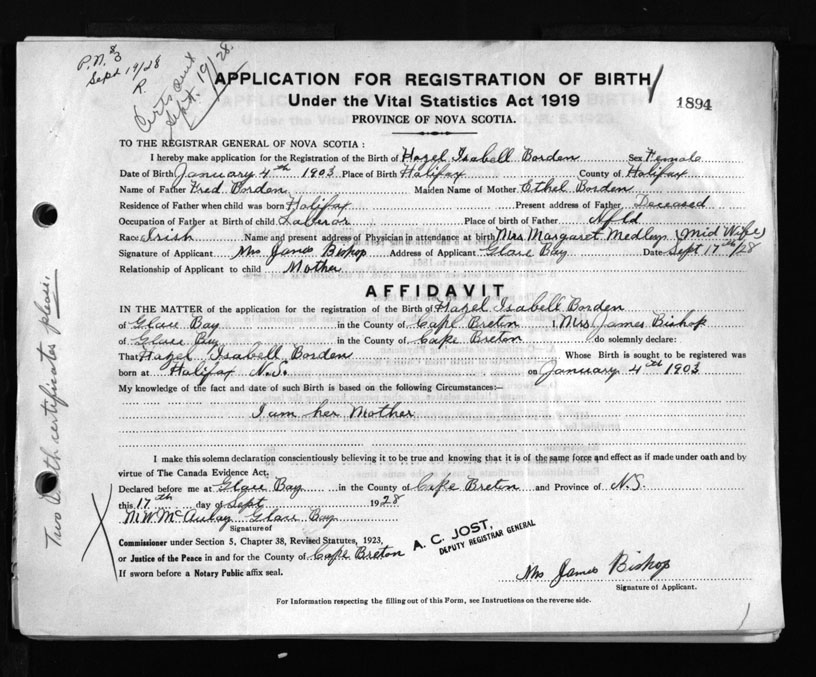 P.N. $3
Sept 19/28
R.
Certs out
Sept. 19/28.
APPLICATION FOR REGISTRATION OF BIRTH
Under the Vital Statistics Act 1919
PROVINCE OF NOVA SCOTIA.
1894
TO THE REGISTRAR GENERAL OF NOVA SCOTIA:
I hereby make application for the Registration of the Birth of Hazel Isabell Borden Sex Female
Date of Birth January 4th 1903 Place of Birth Halifax County of Halifax
Name of Father Fred Borden Maiden Name of Mother Ethel Borden
Residence of Father when child was born Halifax Present address of Father Deceased
Occupation of Father at Birth of child Laberor Place of birth of Father Nfld
Race Irish Name and present address of Physician in attendance at birth Mrs Margaret Medley (mid Wife)
Signature of Applicant Mrs James Bishop Address of Applicant Glace Bay Date Sept 17th/28
Relationship of Applicant to child Mother
AFFIDAVIT
IN THE MATTER of the application for the registration of the Birth of Hazel Isabell Borden
of Glace Bay in the County of Cape Breton I, Mrs James Bishop
of Glace Bay in the County of Cape Breton do solemnly declare:
That Hazel Isabell Borden Whose Birth is sought to be registered was
born at Halifax N.S. on January 4th 1903
My knowledge of the fact and date of such Birth is based on the following Circumstances:—
I am her Mother
I make this solemn declaration conscientiously believing it to be true and knowing that it is of the same force and effect as if made under oath and by
virtue of The Canada Evidence Act.
Declared before me at Glace Bay in the County of Cape Breton and Province of N.S.
this 17th day of Sept 1928
Glace Bay
Signature of
Commissioner under Section 5, Chapter 38, Revised Statutes, 1923,
or Justice of the Peace in and for the County of Cape Breton
If sworn before a Notary Public affix seal.
A. C. JOST,
DEPUTY REGISTRAR GENERAL
Mrs James Bishop
Signature of Applicant.
For Information respecting the filling out of this Form, see Instructions on the reverse side.
Two birth certificates please.